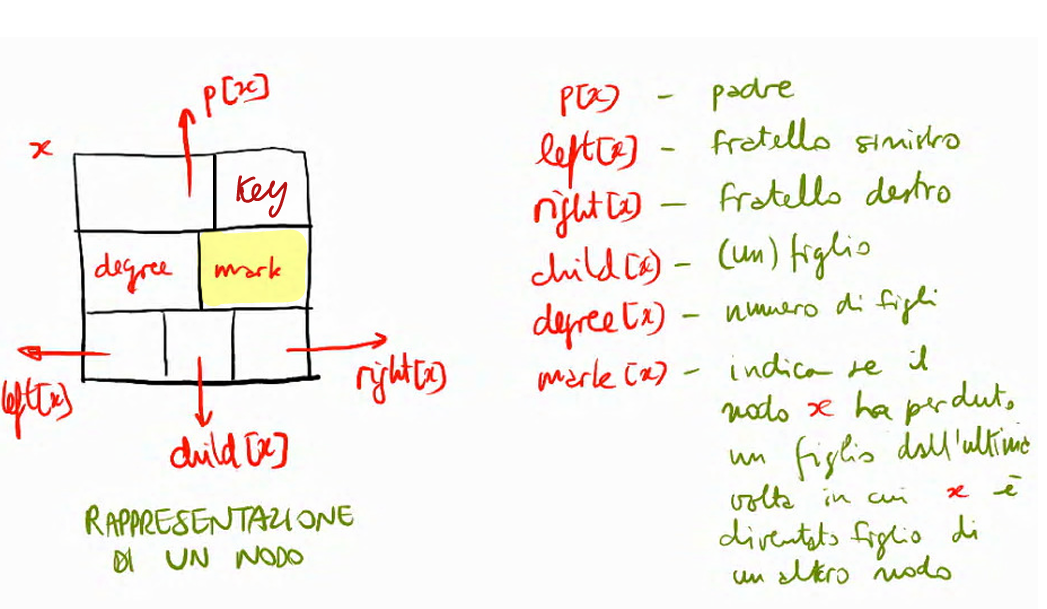 p[x]
x
key
degree
mark
left[x]
right[x]
child[x]
RAPPRESENTAZIONE
DI UN NODO
p[x] - padre
left[x] - fratello sinistro
right[x] - fratello destro
child[x] - (un) figlio
degree[x] - numero di figli
mark[x] - indica se il
nodo x ha perduto
un figlio dall'ultima
volta in cui x è
diventato figlio di
un altro nodo